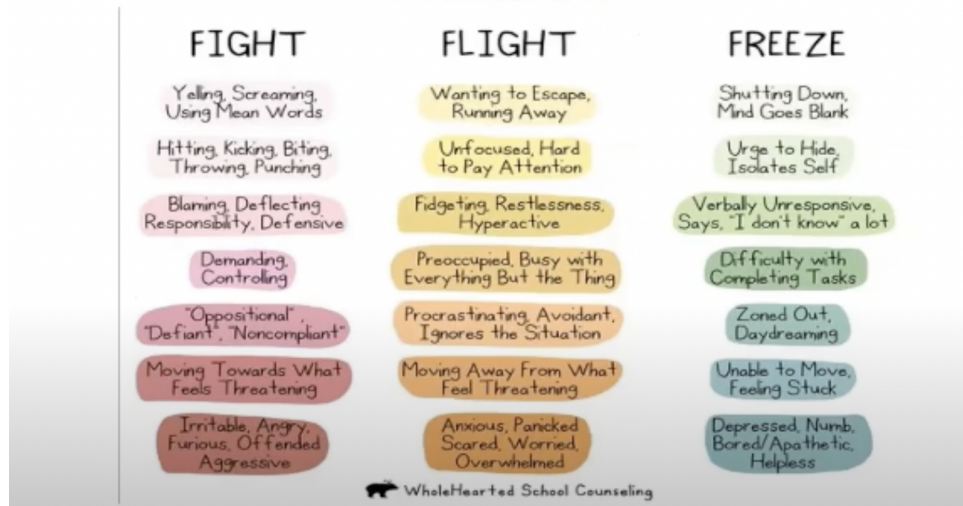 FIGHT
Yelling, Screaming,
Using Mean Words
Hitting, Kicking, Biting,
Throwing, Punching
Blaming, Deflecting
Responsibility, Defensive
Demanding,
Controlling
"Oppositional",
"Defiant", "Noncompliant"
Moving Towards What
Feels Threatening
Irritable, Angry,
Furious, Offended
Aggressive
FLIGHT
Wanting to Escape,
Running Away
Unfocused, Hard
to Pay Attention
Fidgeting, Restlessness,
Hyperactive
Preoccupied, Busy with
Everything But the Thing
Procrastinating, Avoidant,
Ignores the Situation
Moving Away From What
Feel Threatening
Anxious, Panicked
Scared, Worried,
Overwhelmed
FREEZE
Shutting Down,
Mind Goes Blank
Urge to Hide,
Isolates Self
Verbally Unresponsive,
Says, "I don't know" a lot
Difficulty with
Completing Tasks
Zoned Out,
Daydreaming
Unable to Move,
Feeling Stuck
Depressed, Numb,
Bored/Apathetic,
Helpless
WholeHearted School Counseling